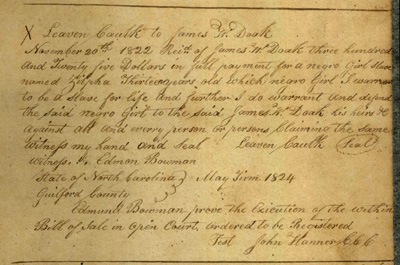 X Leaven Caulk to James W. Doak
November 20th 1822 Recd of James W Doak three hundred
and Twenty five Dollars in full payment for a negro Girl Slave
named Zilpha Thirteen years old which negro Girl I warrant
to be a Slave for life and further I do warrant and defend
the Said negro Girl to the said James W. Doak his heirs &
against all and every person or persons Claiming the Same
Witness my hand and Seal Leaven Caulk (Seal)
witness. Edmon Bowman
State of North Carolina } May Term 1824
Guilford County
Edmund Bowman prove the Execution of the within
Bill of Sale in Open Court, ordered to be Registered
Test John Hanner C C C